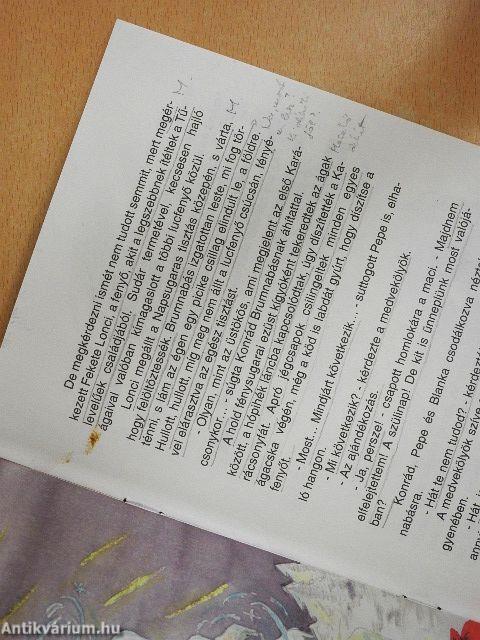 De megkérdezni ismét nem tudott semmit, mert megér-
kezett Fekete Lonci, a fenyő, akit a legszebbnek ítéltek a Tű-
levelűek családjából. Sudár termetével, kecsesen hajló
ágaival valóban kimagaslott a többi lucfenyő közül.
Lonci megállt a Napsugaras tisztás közepén, s várta,
hogy felöltöztessék. Brumnabás izgatottan leste, mi fog tör-
ténni, s lám az égen egy picike csillag elindult le, a földre.
Hullott, hullott, míg meg nem állt a lucfenyő csúcsán, fényé-
vel elárasztva az egész tisztást.
- Olyan, mint az üstökös, ami megjelent az első Kará-
csonykor... - súgta Konrád Brumnabásnak áhítattal.
A hold fénysugarai ezüst kígyóként tekeredtek az ágak
között, a hópihék láncba kapcsolódtak, úgy díszítették a Ka-
rácsonyfát. Apró jégcsapok csilingeltek minden egyes
ágacska végén, még a köd is labdát gyúrt, hogy díszítse a
fenyőt.
- Most... Mindjárt következik... - suttogott Pepe is, elha-
ló hangon.
- Mi következik? - kérdezte a medvekölyök.
- Az ajándékozás.
- Ja, persze! - csapott homlokára a maci. - Majdnem
elfelejtettem! A szülinap! De kit is ünneplünk most valójá-
ban?
Konrád, Pepe és Blanka csodálkozva néztek
nabásra.
- Hát te nem tudod? - kérdezt
A medvekölyök szíve
gyenében.
- Hát
M.
M
Antikvárium.hu